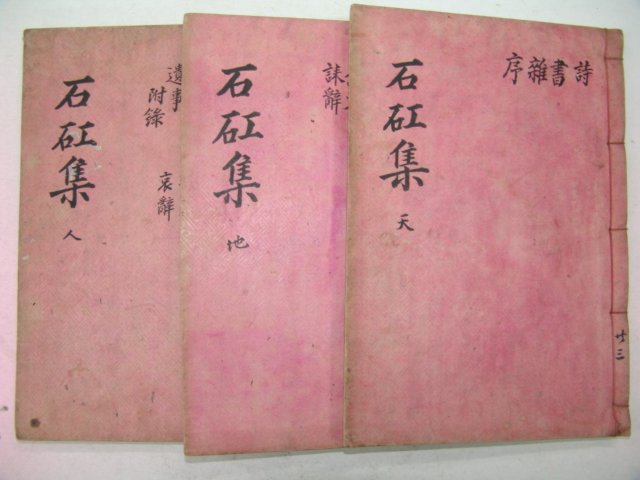 詩書雜序
石矼集
天
廿三
誄辭
石矼集
地
遺事
附錄
哀辭
石矼集
人